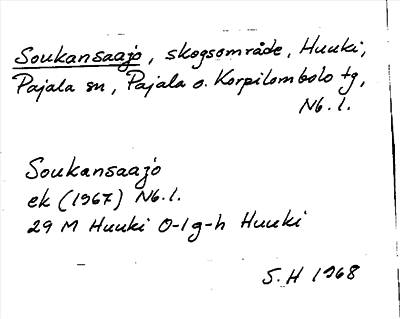 Soukansaajo, skogsområde, Huuki,
Pajala sn, Pajala o. Korpilombolo tg,
Nb. l.
Soukansaajo
ek (1967) Nb. l.
29 M Huuki 0-1 g-h Huuki
S. H 1968